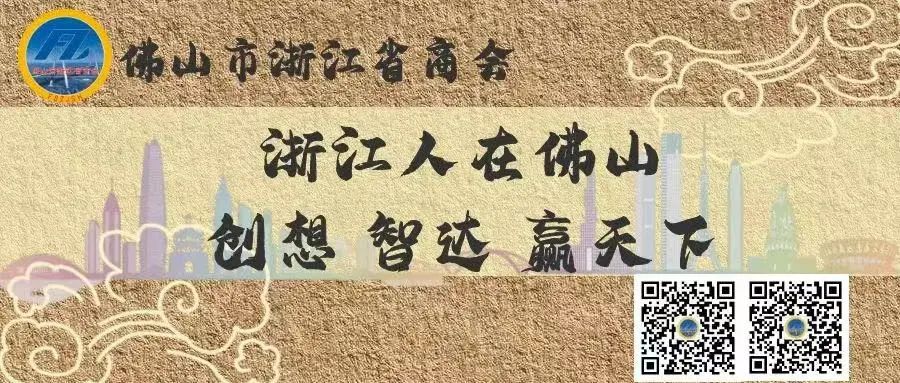 佛山市浙江省商会
浙江人在佛山
创想 智达 赢天下